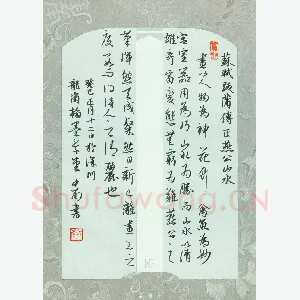 蘇軾跋蒲傳正燕公山水
畫以人物為神花竹禽魚為妙
宮室器用為巧山水為勝而山水以清
雄奇富變態無窮為難燕公之
筆渾然天成粲然日新已離畫工之
度數而得詩人之清麗也
癸巳正月十二日於深圳
龍崗翰墨書
Shufawang.cn